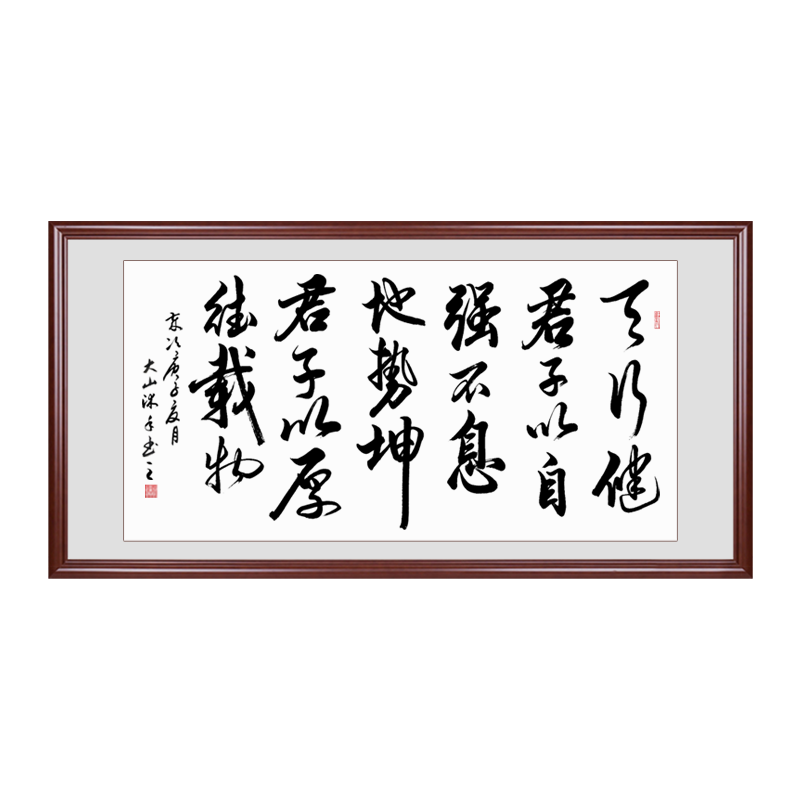 天行健
君子以自
强不息
地势坤
君子以厚
德载物
岁次庚子夏月
大山
书之